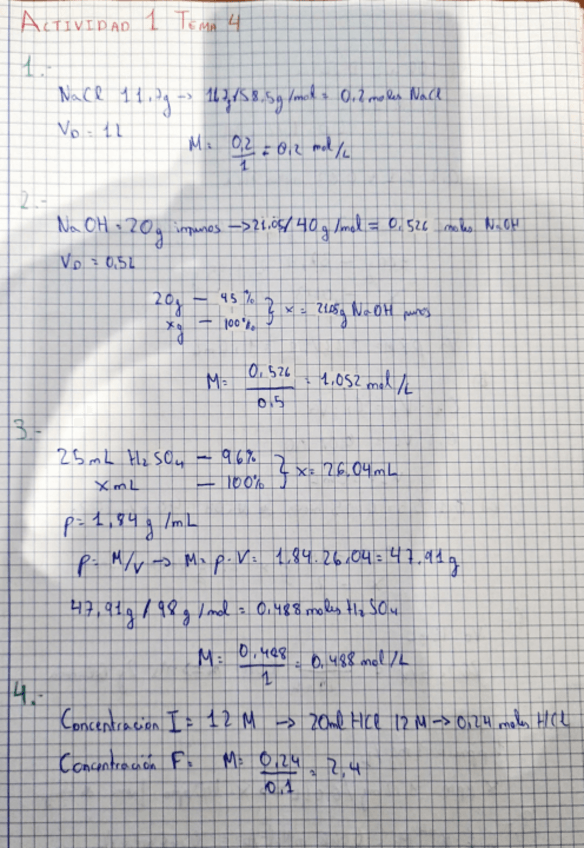 ACTIVIDAD 1 TEMA 4
1.-
NaCl 11,7g → 11,7g/58,5g/mol = 0,2 moles NaCl
VD = 1L
M = 0,2/1 = 0,2 mol/L
2.-
NaOH = 20g impuros → 21,05/40g/mol = 0,526 moles NaOH
VD = 0,5L
20g — 95%
xg — 100% } x = 21,05g NaOH puros
M = 0,526/0,5 = 1,052 mol/L
3.-
25mL H₂SO₄ — 96%
xmL — 100% } x = 26,04mL
ρ = 1,84 g/mL
ρ = M/V → M = ρ·V = 1,84·26,04 = 47,91g
47,91g/98g/mol = 0,488 moles H₂SO₄
M = 0,488/1 = 0,488 mol/L
4.-
Concentración I = 12 M → 20ml HCl 12M → 0,24 moles HCl
Concentración F = M = 0,24/0,1 = 2,4